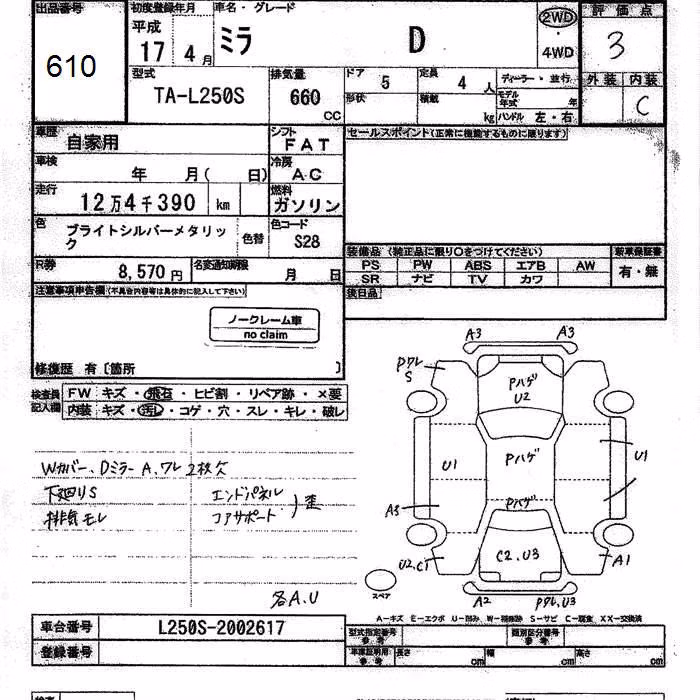 出品番号 初度登録年月 車名・グレード 2WD 評価点
610 平成 17年 4月 ミラ D ・ 4WD 3
型式 排気量 ドア 5 定員 4 人 ディーラー・並行 外装 内装
TA-L250S 660 CC 形状 積載 kg モデル年式 年 C
ハンドル 左・右
車歴 自家用 シフト FAT セールスポイント(正常に機能するものに限ります)
車検 年 月( 日) 冷房 AC
走行 12万4千390 km 燃料 ガソリン
色 ブライトシルバーメタリック 色替 色コード S28
装備品 (純正品に限り○をつけてください) 新車保証書
R券 8,570円 名変通知期限 月 日 PS PW ABS エアB AW 有・無
SR ナビ TV カワ
注意事項申告欄(不具合内容等は具体的に記入して下さい) 後日品
ノークレーム車
no claim
修復歴 有〔箇所 〕
検査員記入欄 FW キズ・飛石・ヒビ割・リペア跡・×要
内装 キズ・汚レ・コゲ・穴・スレ・キレ・破レ
A3 A3
Pワレ
S
Pハゲ
U2
Wカバー、Dミラー A、ワレ 2枚欠
U1 Pハゲ U1
下廻りS エンドパネル
排気モレ コアサポート 歪
Pハゲ
A3
U2,C1 C2,U3 A1
スペア
各A.U
A2 Pワレ,U3
A-キズ E-エクボ U-凹み W-補修跡 S-サビ C-腐食 XX-交換済
車台番号 L250S-2002617 型式指定番号 参考 類別区分番号 参考
登録番号 車庫証明用 参考 長さ cm 幅 cm 高さ cm